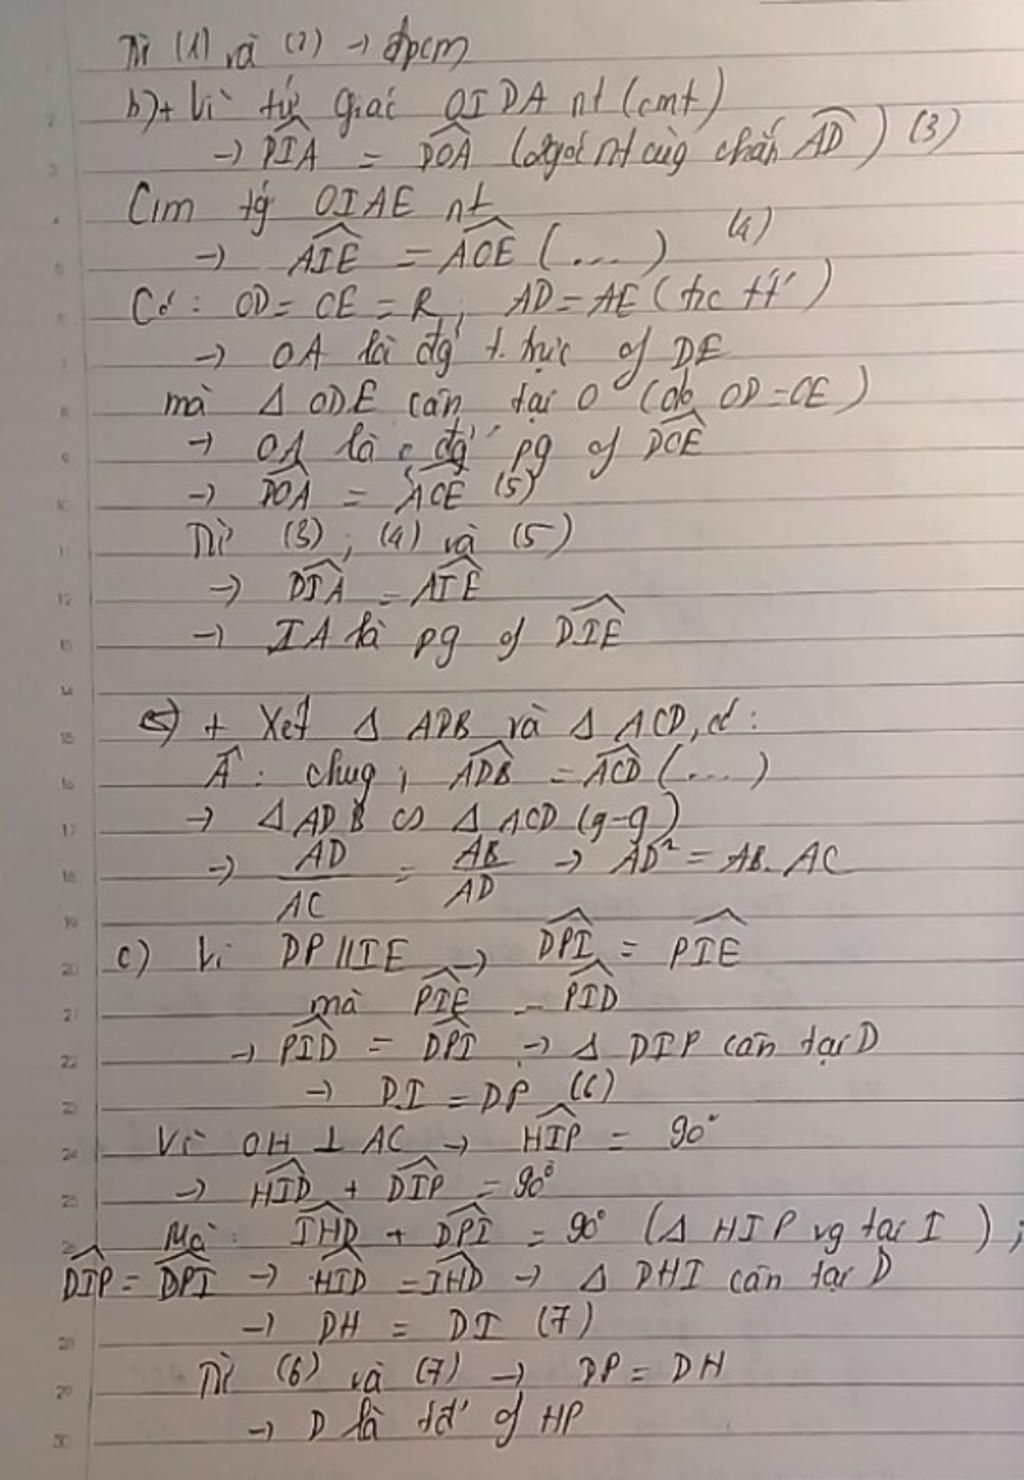 Từ (1) và (2) → đpcm
b) + Vì tứ giác OIDA nt (cmt)
→ DIA = DOA (2 góc nt cùg chắn AD) (3)
C.m tg OIAE nt
→ AIE = AOE (...) (4)
Có: OD = OE = R, AD = AE (t/c tt')
→ OA là đg t. trực of DE
mà Δ ODE cân tại O (do OD = OE)
→ OA là đg pg of DOE
→ DOA = AOE (5)
Từ (3), (4) và (5)
→ DIA = AIE
→ IA là pg of DIE
+ Xét Δ ADB và Δ ACD, có:
A: chug; ADB = ACD (...)
→ Δ ADB ∽ Δ ACD (g-g)
→ AD/AC = AB/AD → AD² = AB. AC
c) Vì DP // IE → DPI = PIE
mà PIE = PID
→ PID = DPI → Δ DIP cân tại D
→ DI = DP (6)
Vì OH ⊥ AC → HIP = 90°
→ HID + DIP = 90°
Mà: IHD + DPI = 90° (Δ HIP vg tại I);
DIP = DPI → HID = IHD → Δ DHI cân tại D
→ DH = DI (7)
Từ (6) và (7) → DP = DH
→ D là tđ' of HP